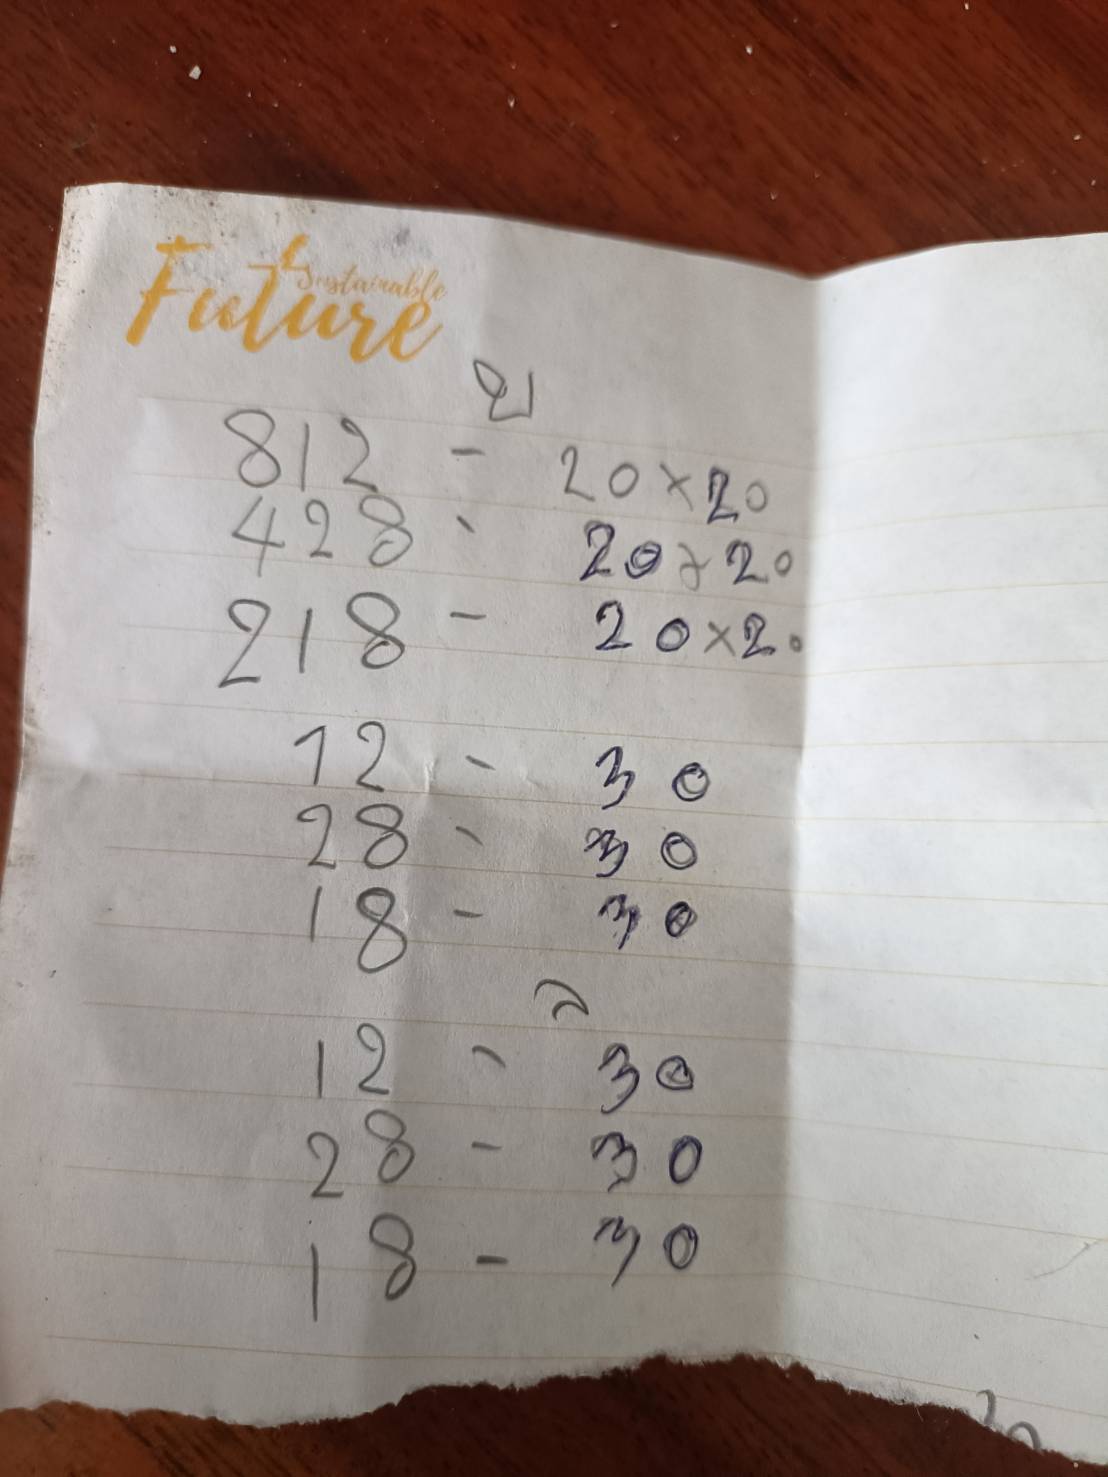 Sustainable
Future
บ
812 - 20×20
428 - 20×20
218 - 20×20
12 - 30
28 - 30
18 - 30
ล
12 - 30
28 - 30
18 - 30